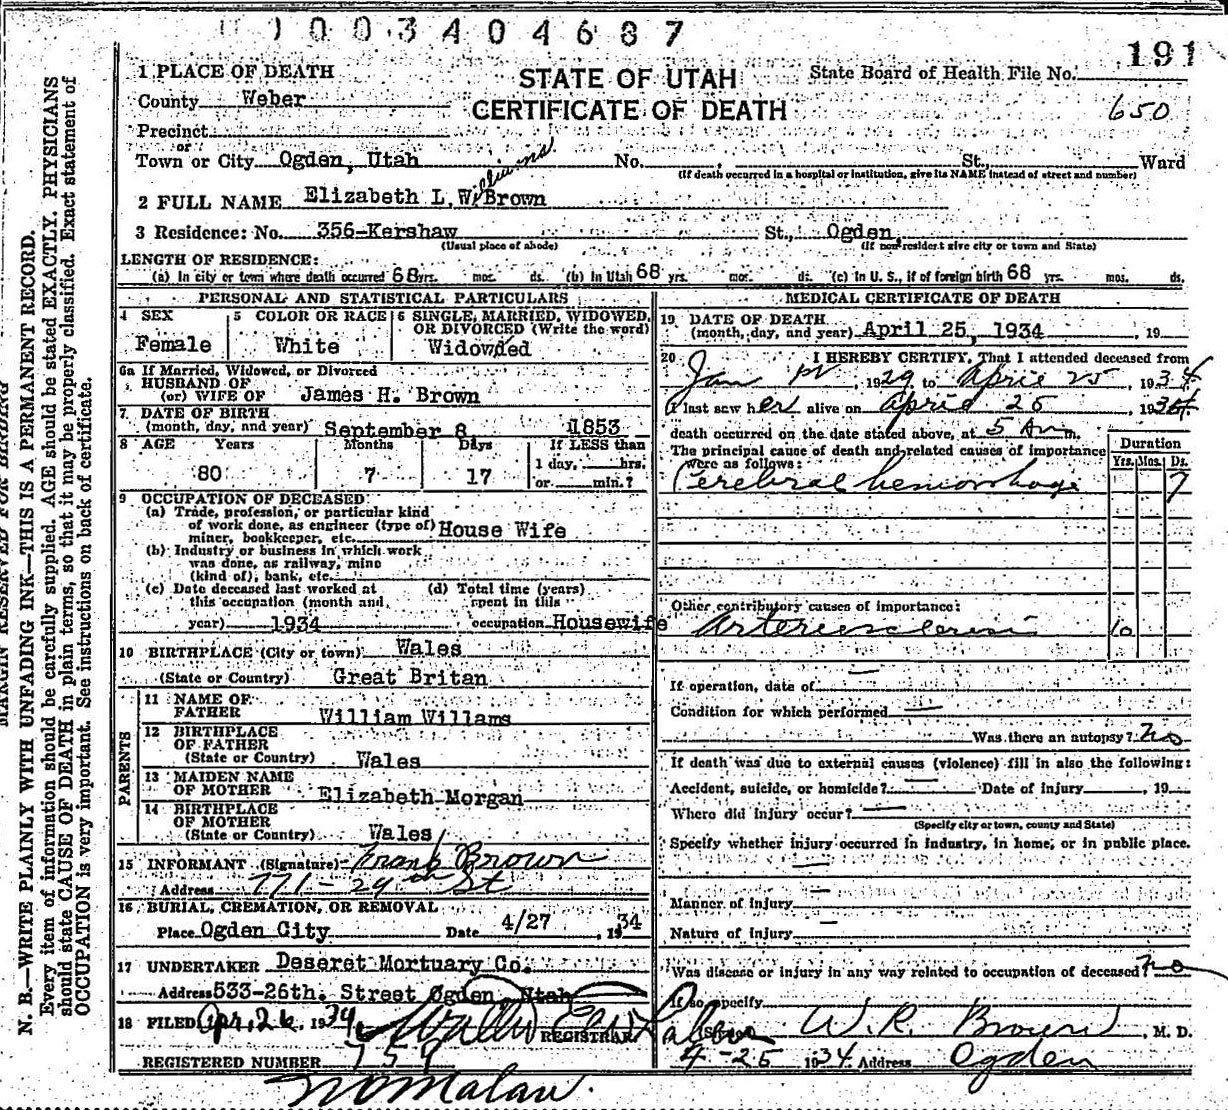 1003404687
191
1 PLACE OF DEATH
STATE OF UTAH
State Board of Health File No.
County Weber
CERTIFICATE OF DEATH
650
Precinct
or
Town or City Ogden, Utah No. , St., Ward
(If death occurred in a hospital or institution, give its NAME instead of street and number)
2 FULL NAME Elizabeth L. Williams Brown
3 Residence: No. 356-Kershaw St., Ogden
(Usual place of abode) (If nonresident give city or town and State)
LENGTH OF RESIDENCE:
(a) In city or town where death occurred 68 yrs. mos. ds. (b) in Utah 68 yrs. mos. ds. (c) in U. S., if of foreign birth 68 yrs. mos. ds.
PERSONAL AND STATISTICAL PARTICULARS
4 SEX
Female
5 COLOR OR RACE
White
6 SINGLE, MARRIED, WIDOWED,
OR DIVORCED (Write the word)
Widowded
6a If Married, Widowed, or Divorced
HUSBAND OF
(or) WIFE OF James H. Brown
7. DATE OF BIRTH
(month, day, and year) September 8 1853
8 AGE Years Months Days If LESS than
1 day, hrs.
80 7 17 or min.?
9 OCCUPATION OF DECEASED:
(a) Trade, profession, or particular kind
of work done, as engineer (type of) House Wife
miner, bookkeeper, etc.
(b) Industry or business in which work
was done, as railway, mine
(kind of), bank, etc.
(c) Date deceased last worked at (d) Total time (years)
this occupation (month and spent in this
year) 1934 occupation Housewife
10 BIRTHPLACE (City or town) Wales
(State or Country) Great Britan
PARENTS
11 NAME OF
FATHER William Willams
12 BIRTHPLACE
OF FATHER
(State or Country) Wales
13 MAIDEN NAME
OF MOTHER Elizabeth Morgan
14 BIRTHPLACE
OF MOTHER
(State or Country) Wales
15 INFORMANT (Signature) Frank Brown
Address 771-29th St
16 BURIAL, CREMATION, OR REMOVAL
Place Ogden City Date 4/27, 1934
17 UNDERTAKER Deseret Mortuary Co.
Address 533-26th. Street Ogden, Utah
18 FILED Apr. 26, 1934
REGISTRAR
REGISTERED NUMBER
MEDICAL CERTIFICATE OF DEATH
19 DATE OF DEATH
(month, day, and year) April 25, 1934, 19
20 I HEREBY CERTIFY, That I attended deceased from
Jan , 1929, to April 25, 1934
I last saw her alive on April 25, 1934
death occurred on the date stated above, at 5 Am m.
The principal cause of death and related causes of importance
were as follows:
Duration
Yrs. Mos. Ds.
Cerebral hemorrhage 7
Other contributory causes of importance:
Arteriosclerosis 10
If operation, date of
Condition for which performed
Was there an autopsy? no
If death was due to external causes (violence) fill in also the following:
Accident, suicide, or homicide? Date of injury , 19
Where did injury occur?
(Specify city or town, county and State)
Specify whether injury occurred in industry, in home, or in public place.
Manner of injury
Nature of injury
Was disease or injury in any way related to occupation of deceased? no
If so specify
(Signed) W. R. Brown, M. D.
4-25 1934 Address Ogden
MARGIN RESERVED FOR BINDING
N. B.—WRITE PLAINLY WITH UNFADING INK—THIS IS A PERMANENT RECORD.
Every item of information should be carefully supplied. AGE should be stated EXACTLY. PHYSICIANS
should state CAUSE OF DEATH in plain terms, so that it may be properly classified. Exact statement of
OCCUPATION is very important. See instructions on back of certificate.